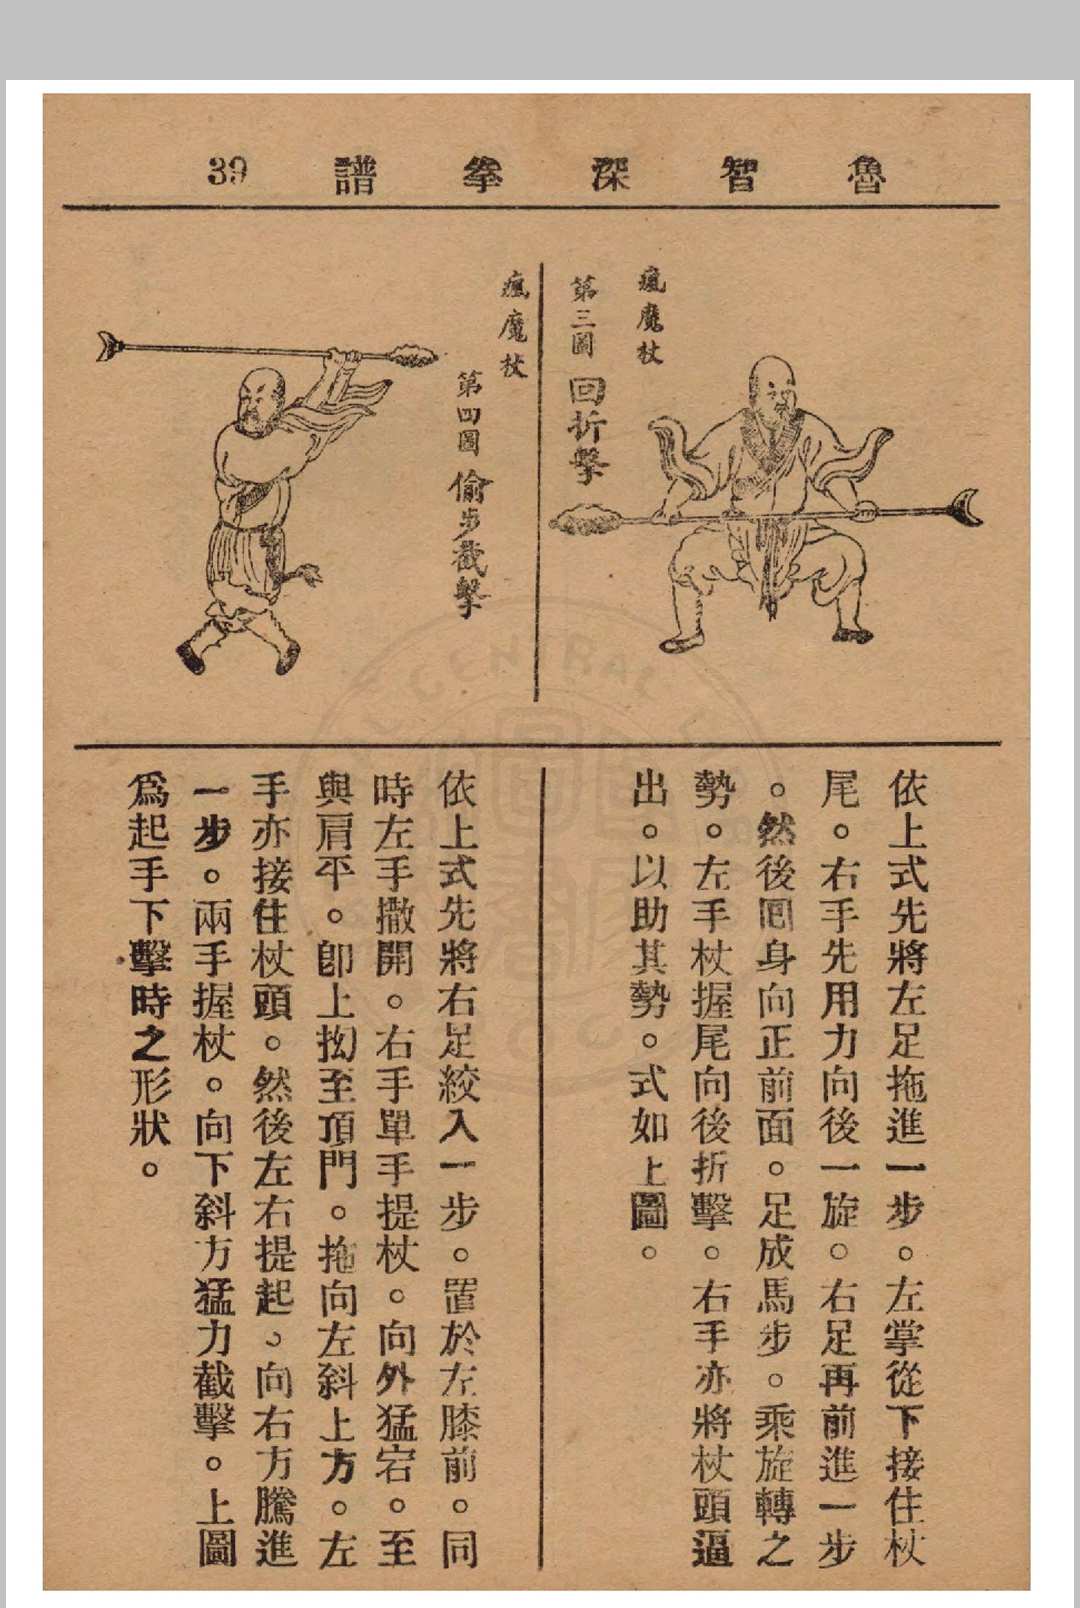 魯智深拳譜 39
瘋魔杖
第三圖 回折擊
依上式先將左足拖進一步。左掌從下接住杖
尾。右手先用力向後一旋。右足再前進一步
。然後囘身向正前面。足成馬步。乘旋轉之
勢。左手杖握尾向後折擊。右手亦將杖頭逼
出。以助其勢。式如上圖。
瘋魔杖
第四圖 偷步截擊
依上式先將右足絞入一步。置於左膝前。同
時左手撒開。右手單手提杖。向外猛宕。至
與肩平。卽上拗至頂門。拖向左斜上方。左
手亦接住杖頭。然後左右提起。向右方騰進
一步。兩手握杖。向下斜方猛力截擊。上圖
爲起手下擊時之形狀。
CENTRAL